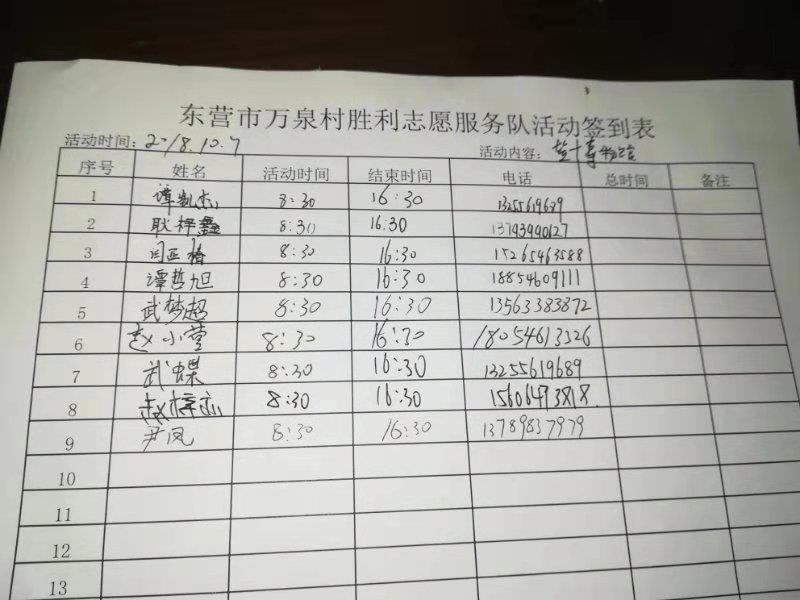 东营市万泉村胜利志愿服务队活动签到表
活动时间: 2018.10.7 活动内容:
序号 姓名 活动时间 结束时间 电话 总时间 备注
1 谭凯杰 8:30 16:30 13255619689
2 耿梓鑫 8:30 16:30 13793990127
3 闫亚楠 8:30 16:30 15265463588
4 谭哲旭 8:30 16:30 18854609111
5 武梦超 8:30 16:30 13563383872
6 赵小萱 8:30 16:30 18054613326
7 武蝶 8:30 16:30 13255619689
8 8:30 16:30 15606493818
9 尹凤 8:30 16:30 13789837979
10
11
12
13